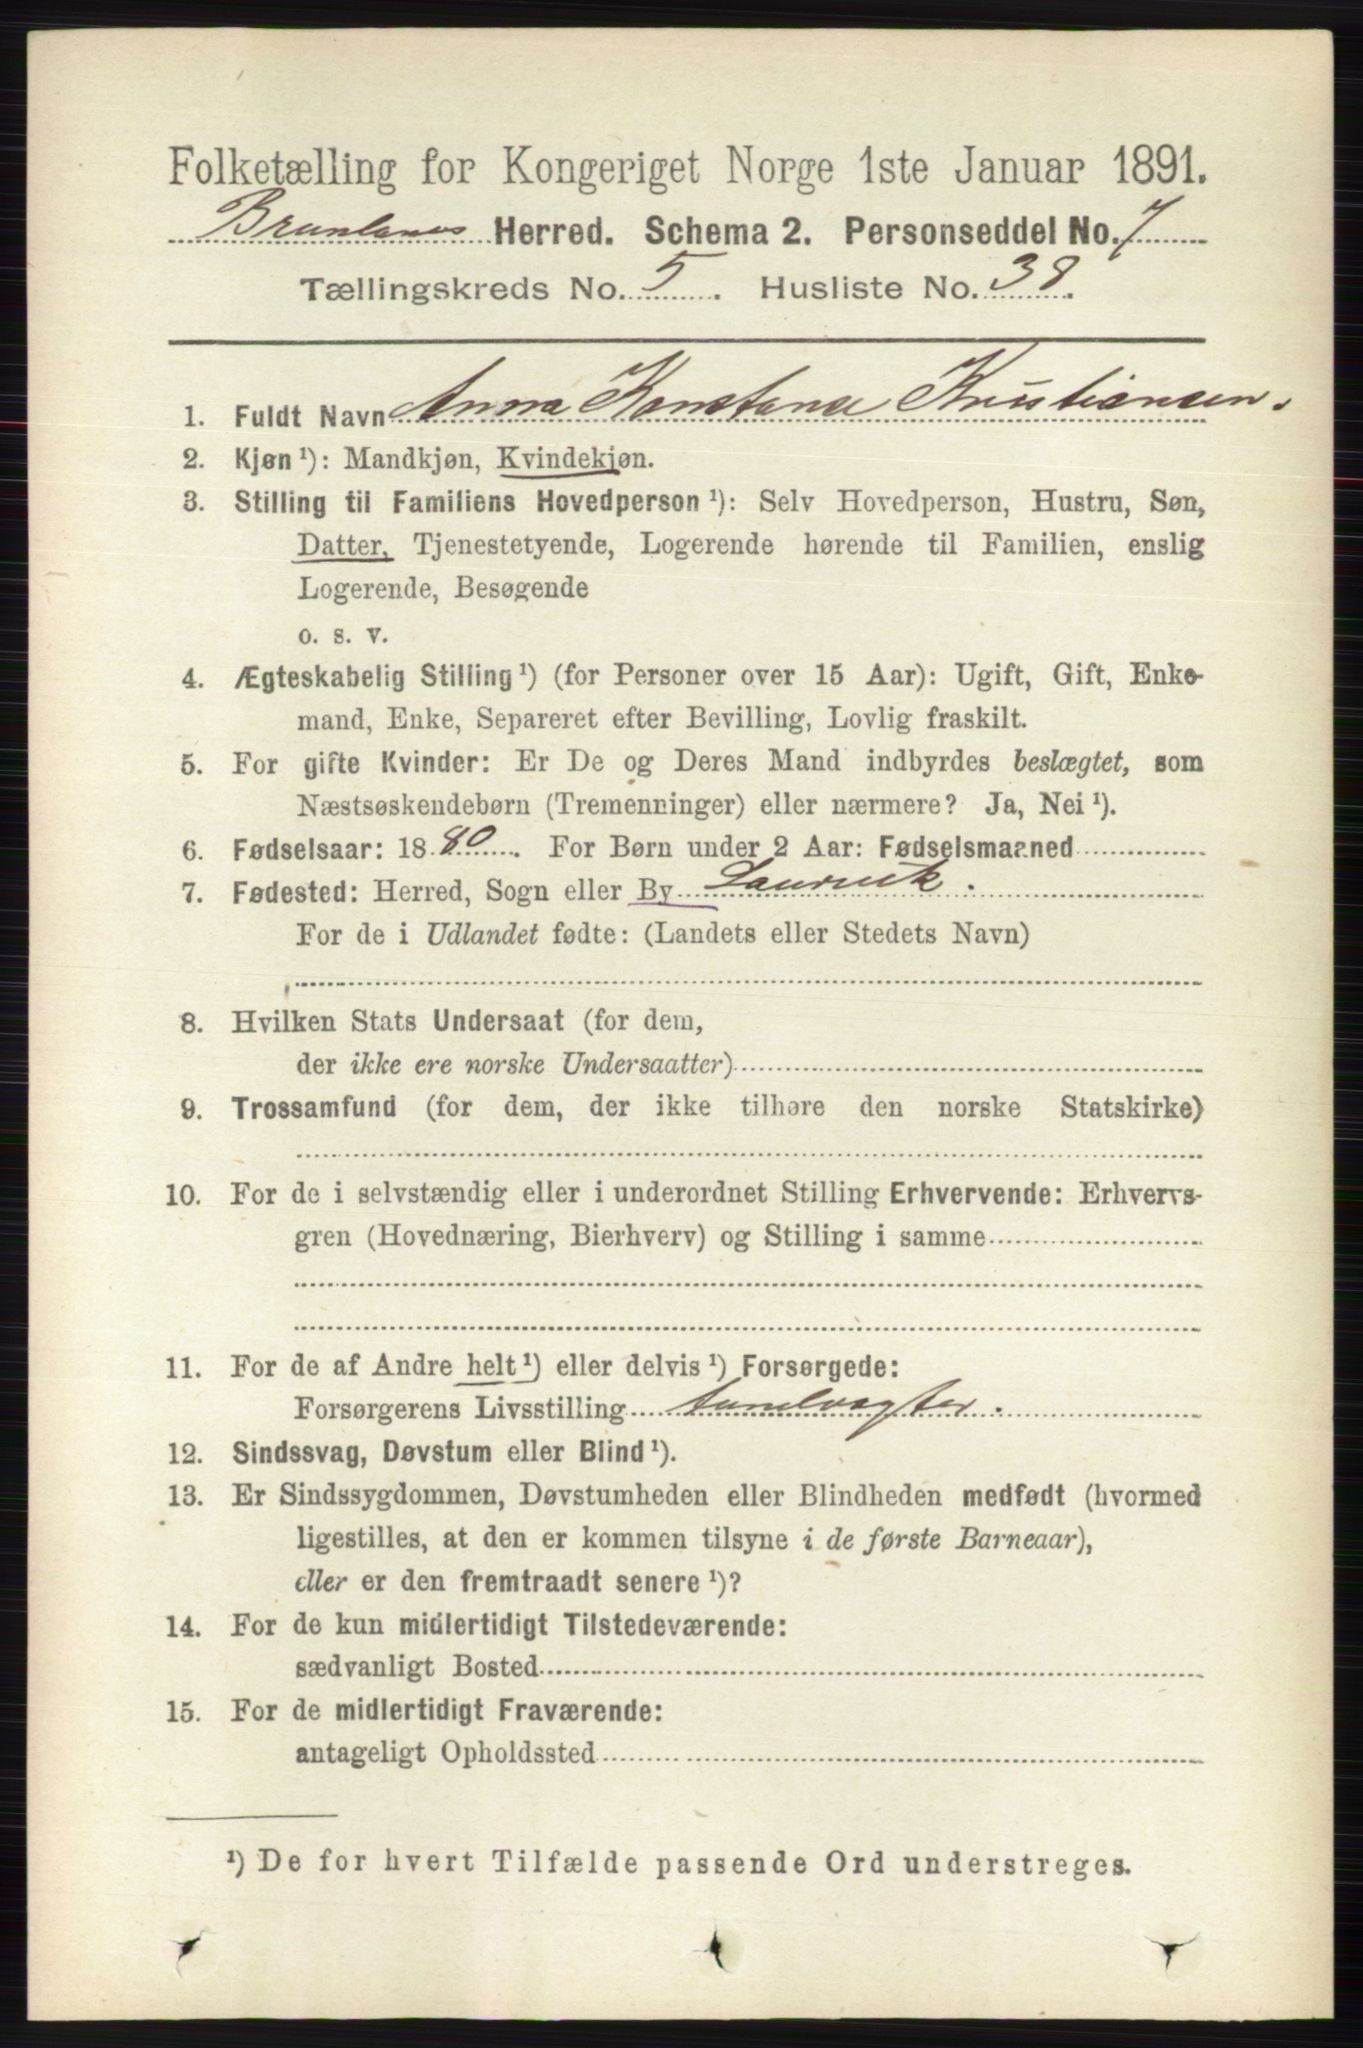 Folketælling for Kongeriget Norge 1ste Januar 1891.
Brunlanes Herred. Schema 2. Personseddel No. 7
Tællingskreds No. 5. Husliste No. 38.
1. Fuldt Navn Anna Konstance Kristiansen.
2. Kjøn ¹): Mandkjøn, Kvindekjøn.
3. Stilling til Familiens Hovedperson ¹): Selv Hovedperson, Hustru, Søn,
Datter, Tjenestetyende, Logerende hørende til Familien, enslig
Logerende, Besøgende
o. s. v.
4. Ægteskabelig Stilling ¹) (for Personer over 15 Aar): Ugift, Gift, Enke-
mand, Enke, Separeret efter Bevilling, Lovlig fraskilt.
5. For gifte Kvinder: Er De og Deres Mand indbyrdes beslægtet, som
Næstsøskendebørn (Tremenninger) eller nærmere? Ja, Nei ¹).
6. Fødselsaar: 1880. For Børn under 2 Aar: Fødselsmaaned
7. Fødested: Herred, Sogn eller By Laurvik.
For de i Udlandet fødte: (Landets eller Stedets Navn)
8. Hvilken Stats Undersaat (for dem,
der ikke ere norske Undersaatter)
9. Trossamfund (for dem, der ikke tilhøre den norske Statskirke)
10. For de i selvstændig eller i underordnet Stilling Erhvervende: Erhvervs-
gren (Hovednæring, Bierhverv) og Stilling i samme
11. For de af Andre helt ¹) eller delvis ¹) Forsørgede:
Forsørgerens Livsstilling
12. Sindssvag, Døvstum eller Blind ¹).
13. Er Sindssygdommen, Døvstumheden eller Blindheden medfødt (hvormed
ligestilles, at den er kommen tilsyne i de første Barneaar),
eller er den fremtraadt senere ¹)?
14. For de kun midlertidigt Tilstedeværende:
sædvanligt Bosted
15. For de midlertidigt Fraværende:
antageligt Opholdssted
¹) De for hvert Tilfælde passende Ord understreges.